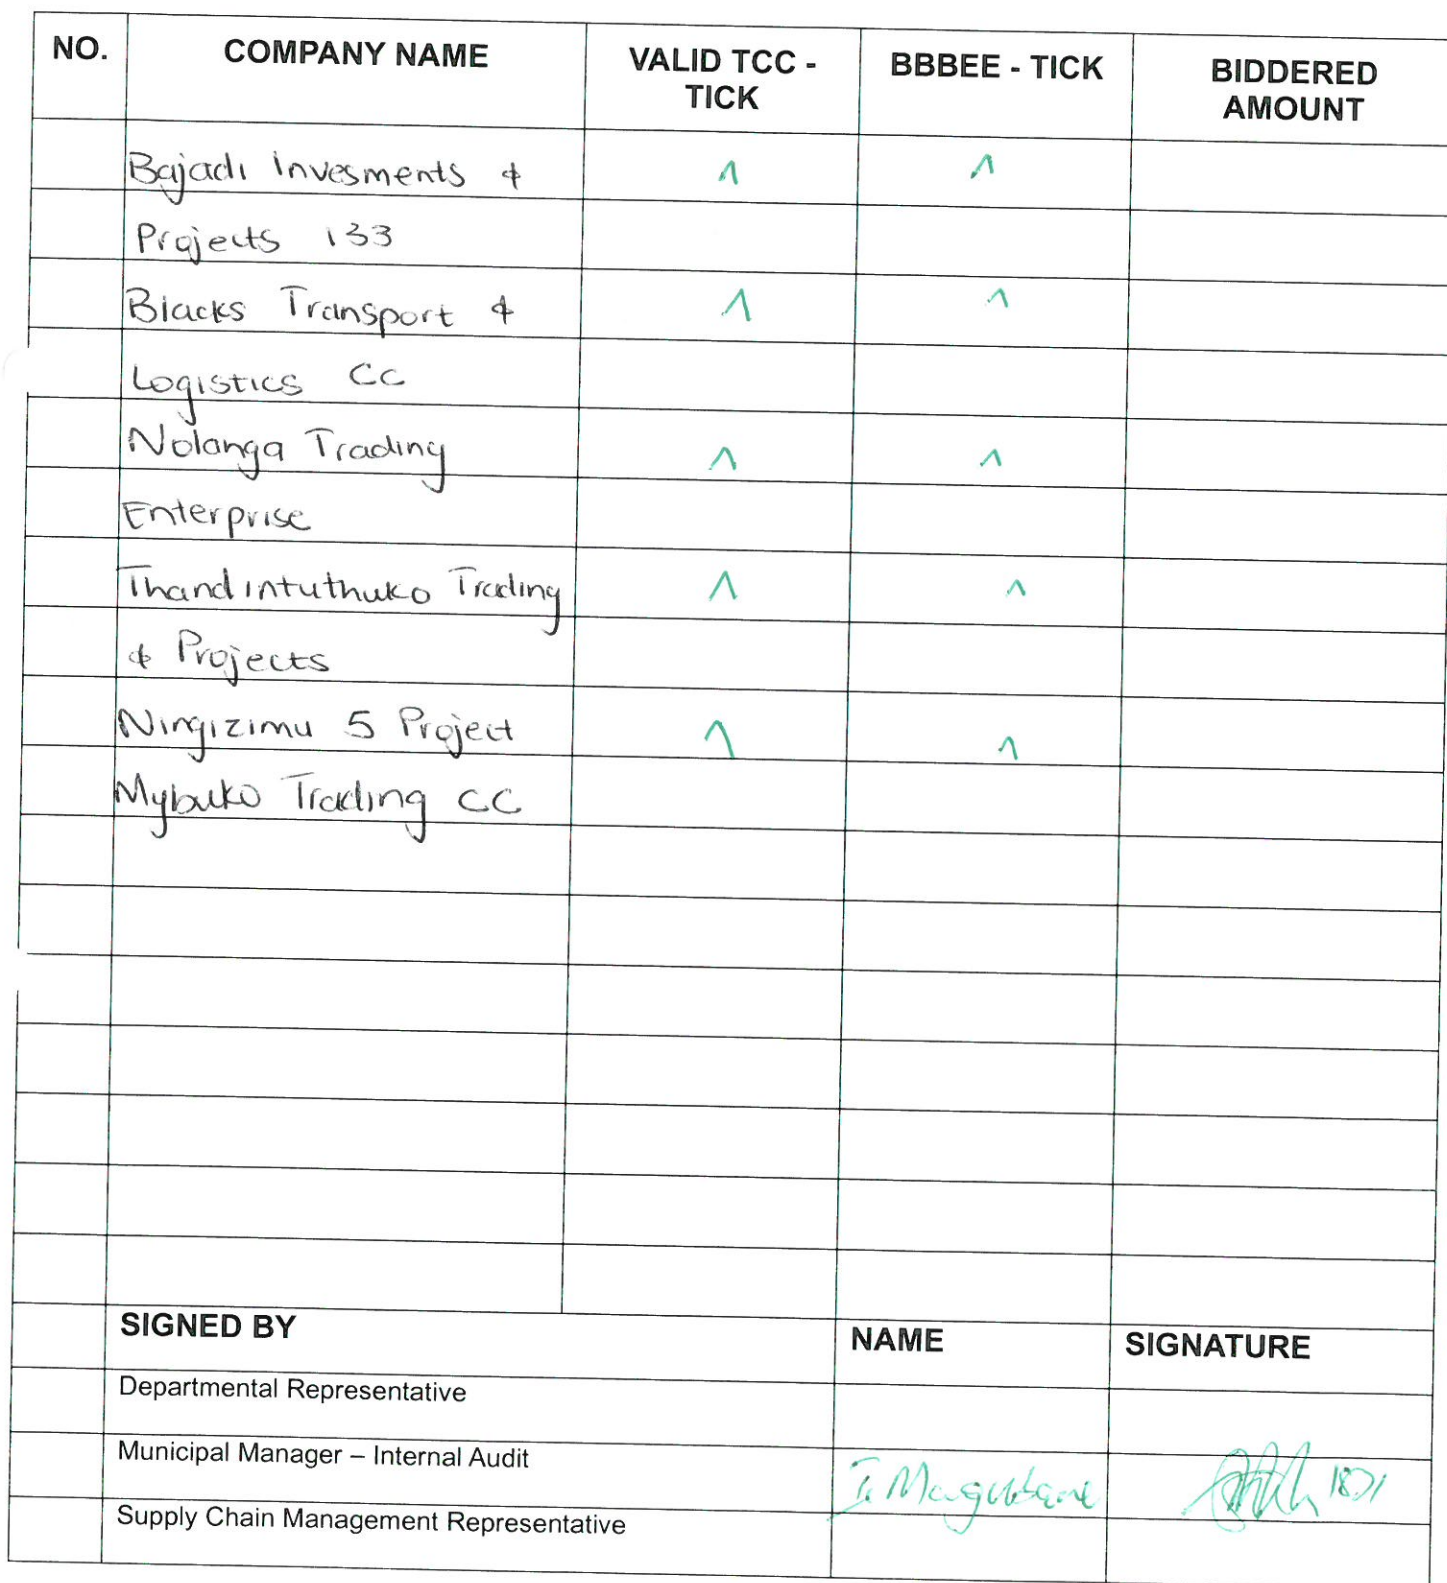 NO. COMPANY NAME VALID TCC - BBBEE - TICK BIDDERED
TICK AMOUNT
Bajadi Invesments &
Projects 133
Blacks Transport &
Logistics CC
Nolanga Trading
Enterprise
Thandintuthuko Trading
& Projects
Ningizimu 5 Project
Mybuko Trading CC
SIGNED BY NAME SIGNATURE
Departmental Representative
Municipal Manager – Internal Audit
Supply Chain Management Representative